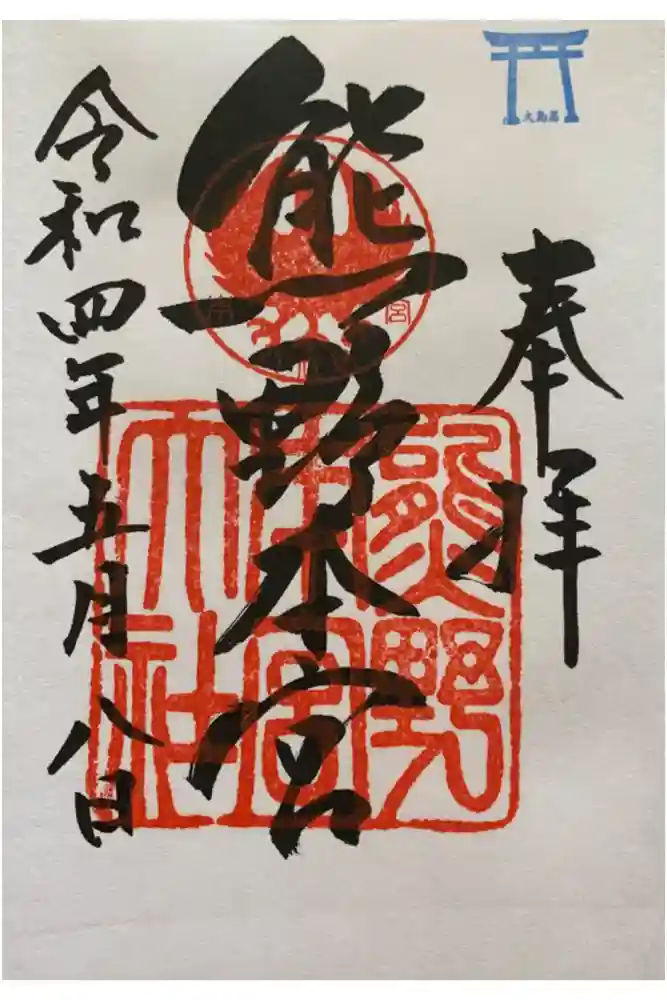 奉拝
熊野本宮
令和四年五月八日
熊野
本宮
大社
大鳥居